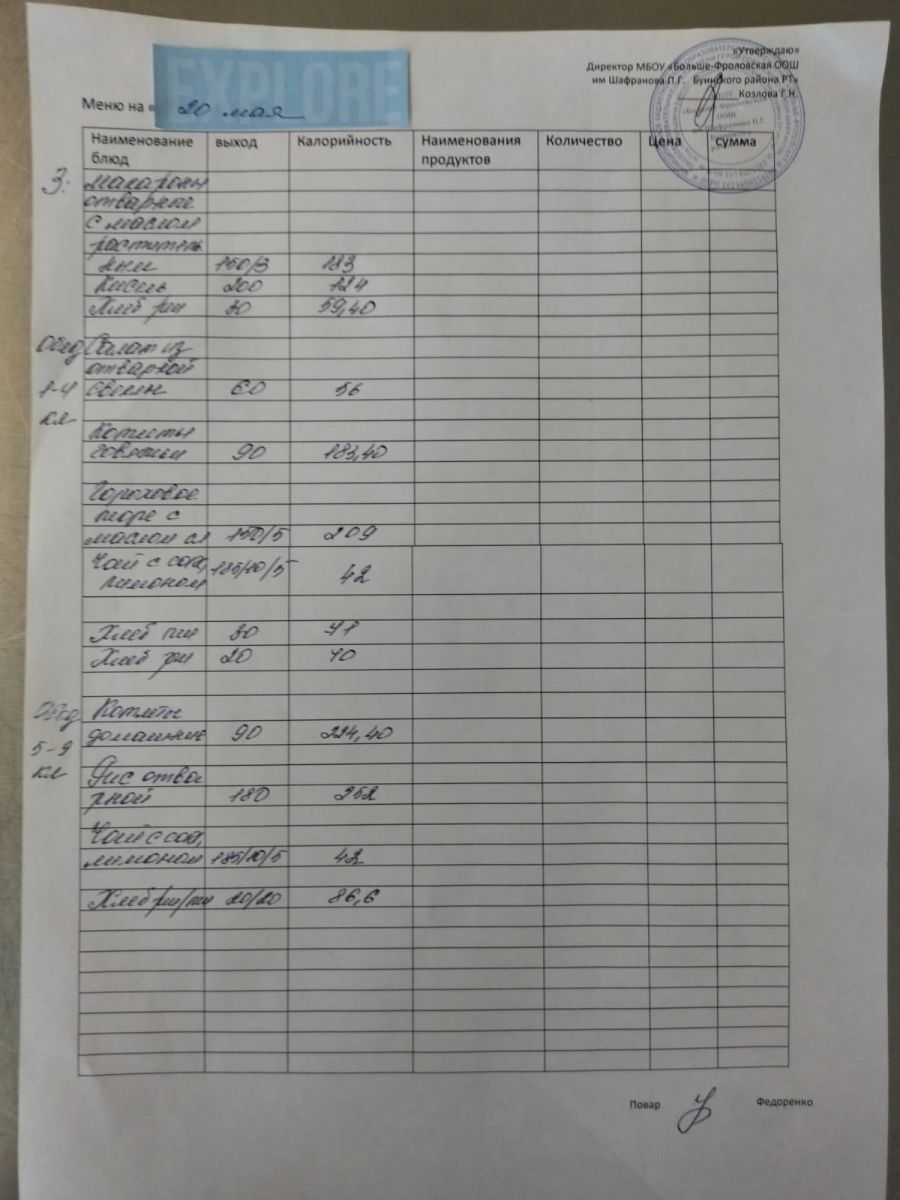 «Утверждаю»
Директор МБОУ «Больше-Фроловская ООШ
им Шафранова П.Г. Буинского района РТ»
Козлова Г.Н.
EXPLORE
Меню на « 20 мая
Наименование блюд выход Калорийность Наименования продуктов Количество Цена сумма
З: Макароны
отварные
с маслом
раститель
ным 150/3 183
Кисель 200 124
Хлеб рж 30 59,40
Обед Салат из
отварной
1-4 свеклы 60 56
кл
Котлеты
говяжьи 90 183,40
Гороховое
пюре с
маслом сл 150/5 209
Чай с сах, 185/10/5
лимоном 42
Хлеб пш 30 71
Хлеб рж 20 40
Обед Котлеты
домашние 90 224,40
5-9
кл Рис отва
рной 180 252
Чай с сах,
лимоном 185/10/5 42
Хлеб рж/пш 20/20 86,6
Повар Федоренко